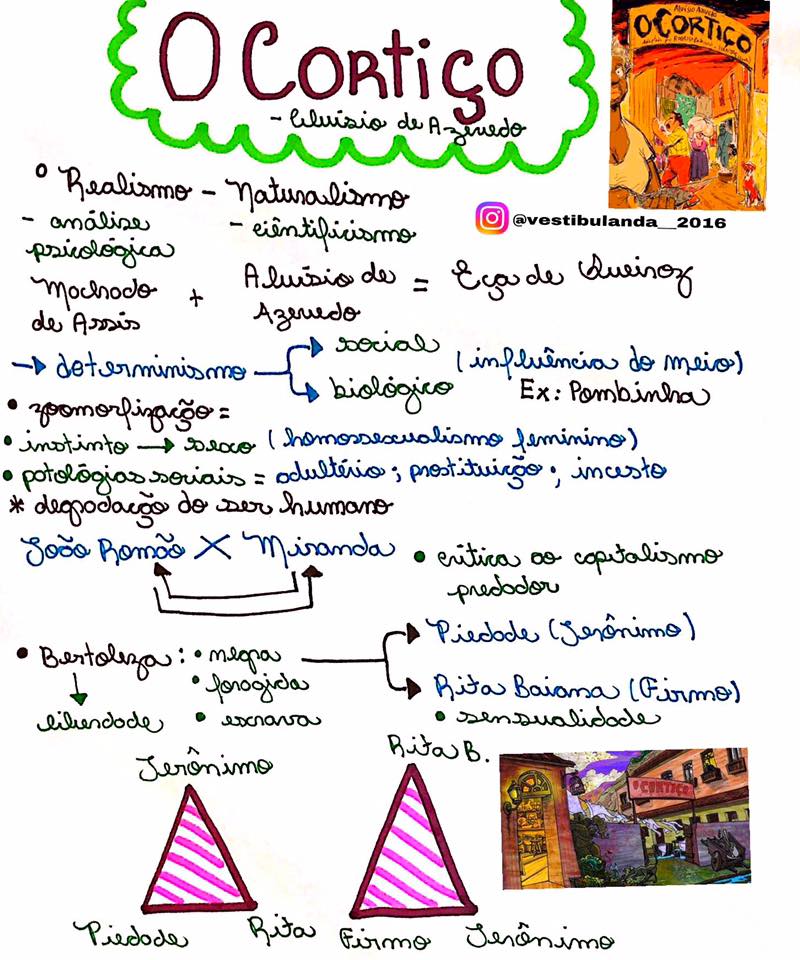 O Cortiço
- Aluísio de Azevedo
Aluísio Azevedo
O CORTIÇO
° Realismo - Naturalismo
@vestibulanda_2016
- análise psicológica
- cientificismo
Machado de Assis + Aluísio de Azevedo = Eça de Queiroz
→ determinismo
social
biológico
(influência do meio)
Ex: Pombinha
• zoomorfização =
• instinto → sexo (homossexualismo feminino)
• patológias sociais = adultério; prostituição; incesto
* degradação do ser humano
João Romão X Miranda
• crítica ao capitalismo
predador
• Bertoleza: • negra
• foragida
• escrava
liberdade
Piedade (Jerônimo)
Rita Baiana (Firmo)
• sensualidade
Jerônimo
Rita B.
O CORTIÇO
Piedade
Rita
Firmo
Jerônimo